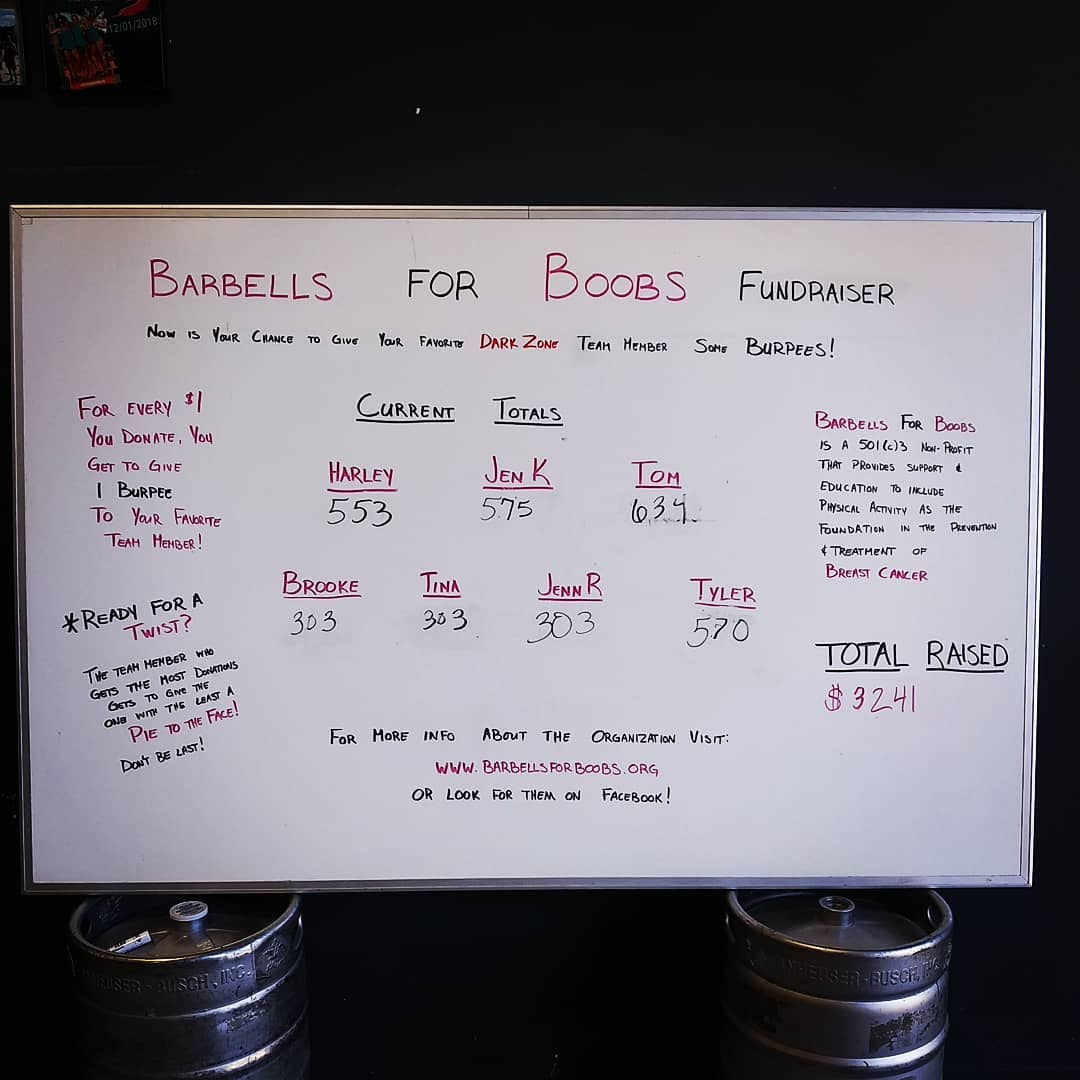 12/01/2018
BARBELLS FOR BOOBS FUNDRAISER
NOW IS YOUR CHANCE TO GIVE YOUR FAVORITE DARK ZONE TEAM MEMBER SOME BURPEES!
FOR EVERY $1
YOU DONATE, YOU
GET TO GIVE
1 BURPEE
TO YOUR FAVORITE
TEAM MEMBER!
*READY FOR A
TWIST?
THE TEAM MEMBER WHO
GETS THE MOST DONATIONS
GETS TO GIVE THE
ONE WITH THE LEAST A
PIE TO THE FACE!
DON'T BE LAST!
CURRENT TOTALS
HARLEY JEN K TOM
553 575 634
BROOKE TINA JENN R TYLER
303 303 303 570
BARBELLS FOR BOOBS
IS A 501(c)3 NON-PROFIT
THAT PROVIDES SUPPORT &
EDUCATION TO INCLUDE
PHYSICAL ACTIVITY AS THE
FOUNDATION IN THE PREVENTION
& TREATMENT OF
BREAST CANCER
TOTAL RAISED
$3241
FOR MORE INFO ABOUT THE ORGANIZATION VISIT:
WWW.BARBELLSFORBOOBS.ORG
OR LOOK FOR THEM ON FACEBOOK!
-BUSCH, INC.
-BUSCH,